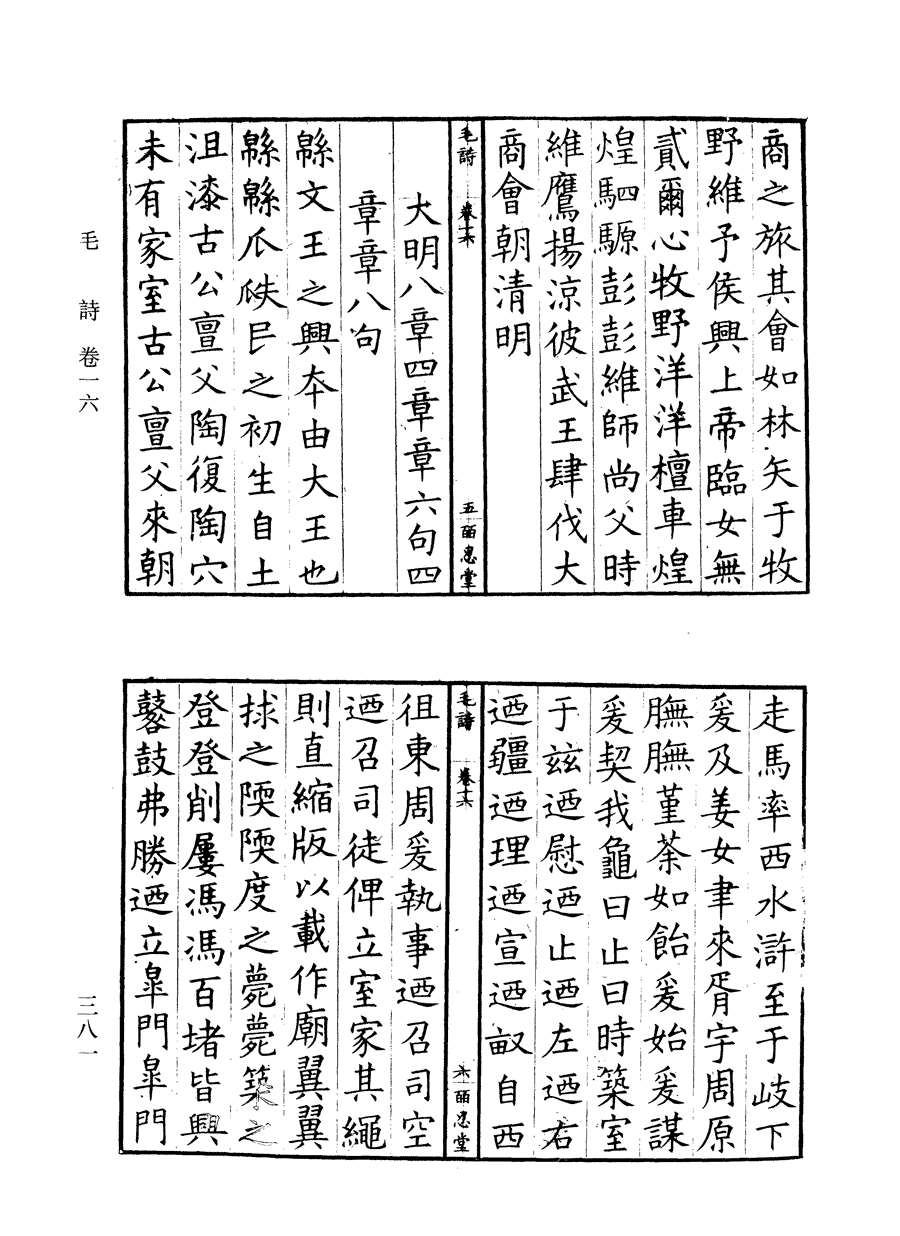 商之旅其會如林矢于牧
野維予侯興上帝臨女無
貳爾心牧野洋洋檀車煌
煌駟騵彭彭維師尚父時
維鷹揚涼彼武王肆伐大
商會朝清明
毛詩 卷十六 五 皕忍堂
大明八章四章章六句四
章章八句
緜文王之興本由大王也
緜緜瓜瓞民之初生自土
沮漆古公亶父陶復陶穴
未有家室古公亶父來朝
走馬率西水滸至于岐下
爰及姜女聿來胥宇周原
膴膴堇荼如飴爰始爰謀
爰契我龜曰止曰時築室
于兹迺慰迺止迺左迺右
迺疆迺理迺宣迺畝自西
毛詩 卷十六 六 皕忍堂
徂東周爰執事迺召司空
迺召司徒俾立室家其繩
則直縮版以載作廟翼翼
捄之陾陾度之薨薨築之
登登削屢馮馮百堵皆興
鼛鼓弗勝迺立皐門皐門
毛 詩 卷一六
三八一